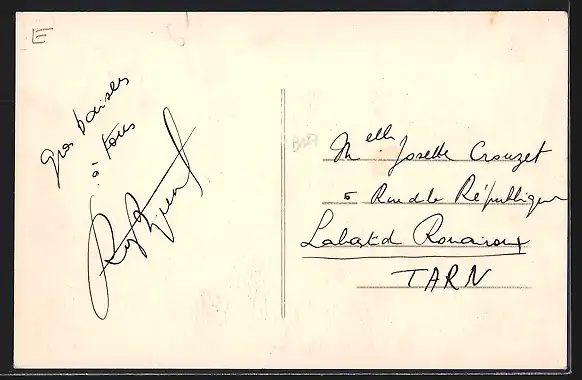 E
gros baisers
à tous
Melle Josette Crouzet
5 Rue de la République
Labastid Rouairoux
TARN